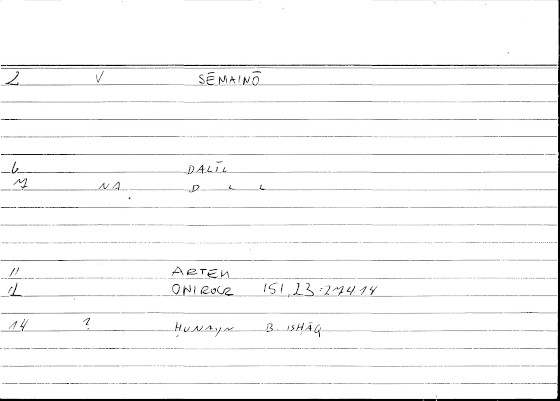 2 V SĒMAINŌ
6 DALĪL
7 NA. D L L
11 ARTEM
12 ONIROCR 151,23:27414
14 ? ḤUNAYN B. ISḤĀQ